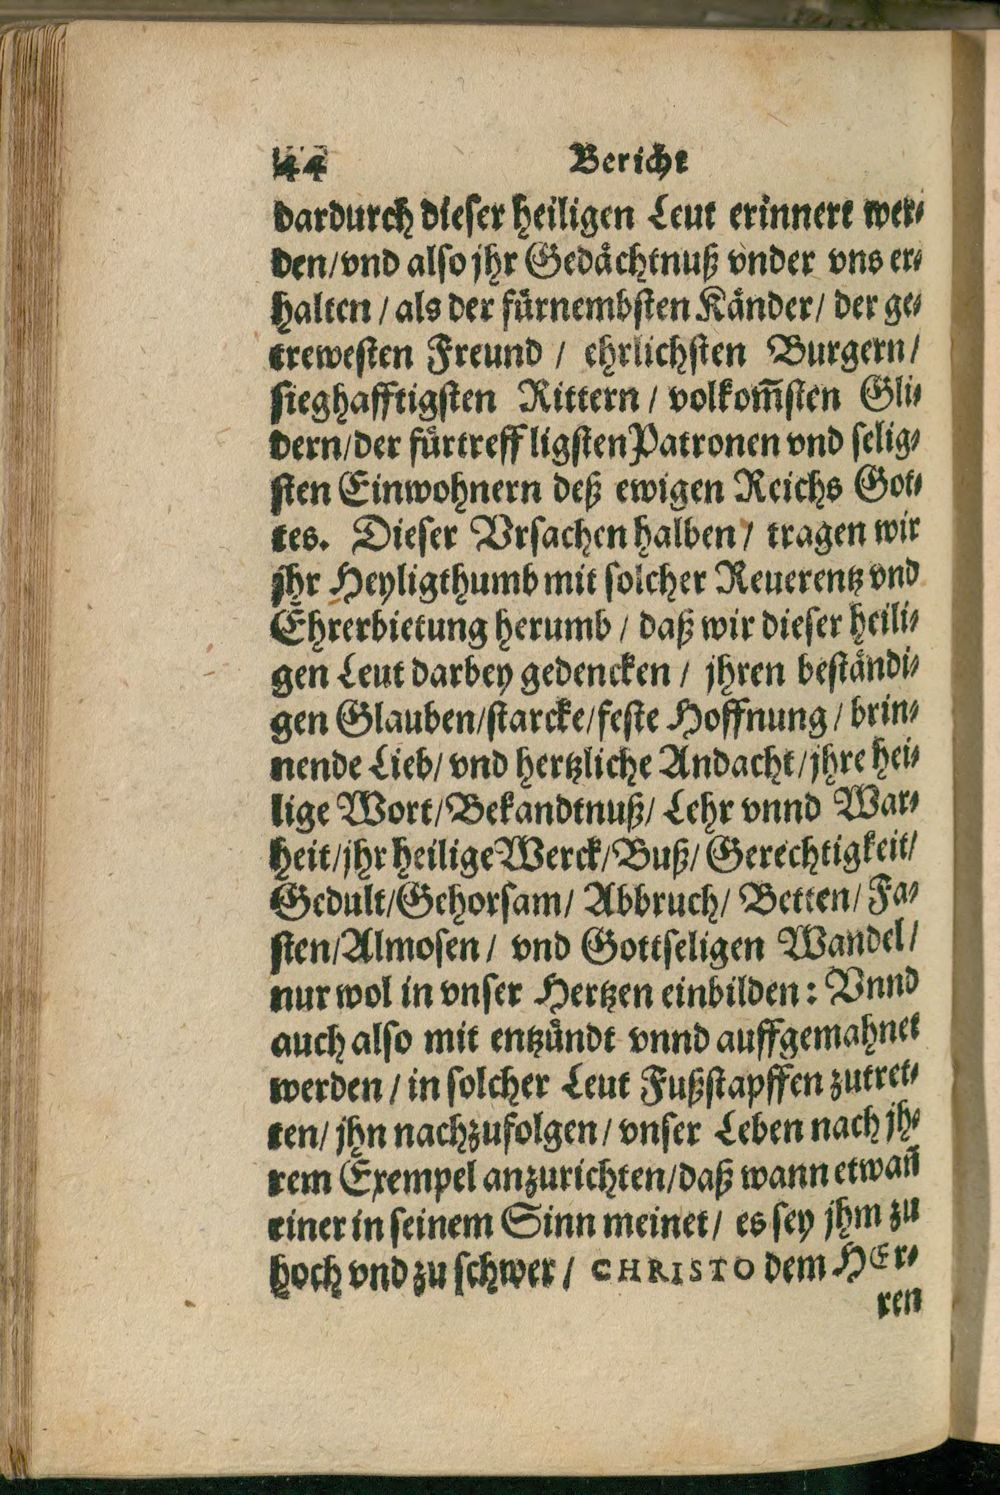 44 Bericht
dardurch dieser heiligen Leut erinnert wer⸗
den/vnd also jhr Gedächtnuß vnder vns er⸗
halten / als der fürnembsten Känder/ der ge⸗
trewesten Freund / ehrlichsten Burgern/
sieghafftigsten Rittern / volkom̃sten Gli⸗
dern/der fürtreffligsten Patronen vnd selig⸗
sten Einwohnern deß ewigen Reichs Got⸗
tes. Dieser Vrsachen halben / tragen wir
jhr Heyligthumb mit solcher Reuerentz vnd
Ehrerbietung herumb / daß wir dieser heili⸗
gen Leut darbey gedencken / jhren beständi⸗
gen Glauben/starcke/feste Hoffnung / brin⸗
nende Lieb/ vnd hertzliche Andacht/jhre hei⸗
lige Wort/Bekandtnuß/ Lehr vnnd War⸗
heit/jhr heilige Werck/Buß/ Gerechtigkeit/
Gedult/Gehorsam/ Abbruch/ Betten/ Fa⸗
sten/Almosen / vnd Gottseligen Wandel/
nur wol in vnser Hertzen einbilden: Vnnd
auch also mit entzündt vnnd auffgemahnet
werden / in solcher Leut Fußstapffen zutret⸗
ten/ jhn nachzufolgen / vnser Leben nach jh⸗
rem Exempel anzurichten/daß wann etwañ
einer in seinem Sinn meinet/ es sey jhm zu
hoch vnd zu schwer / CHRISTO dem HEr⸗
ren